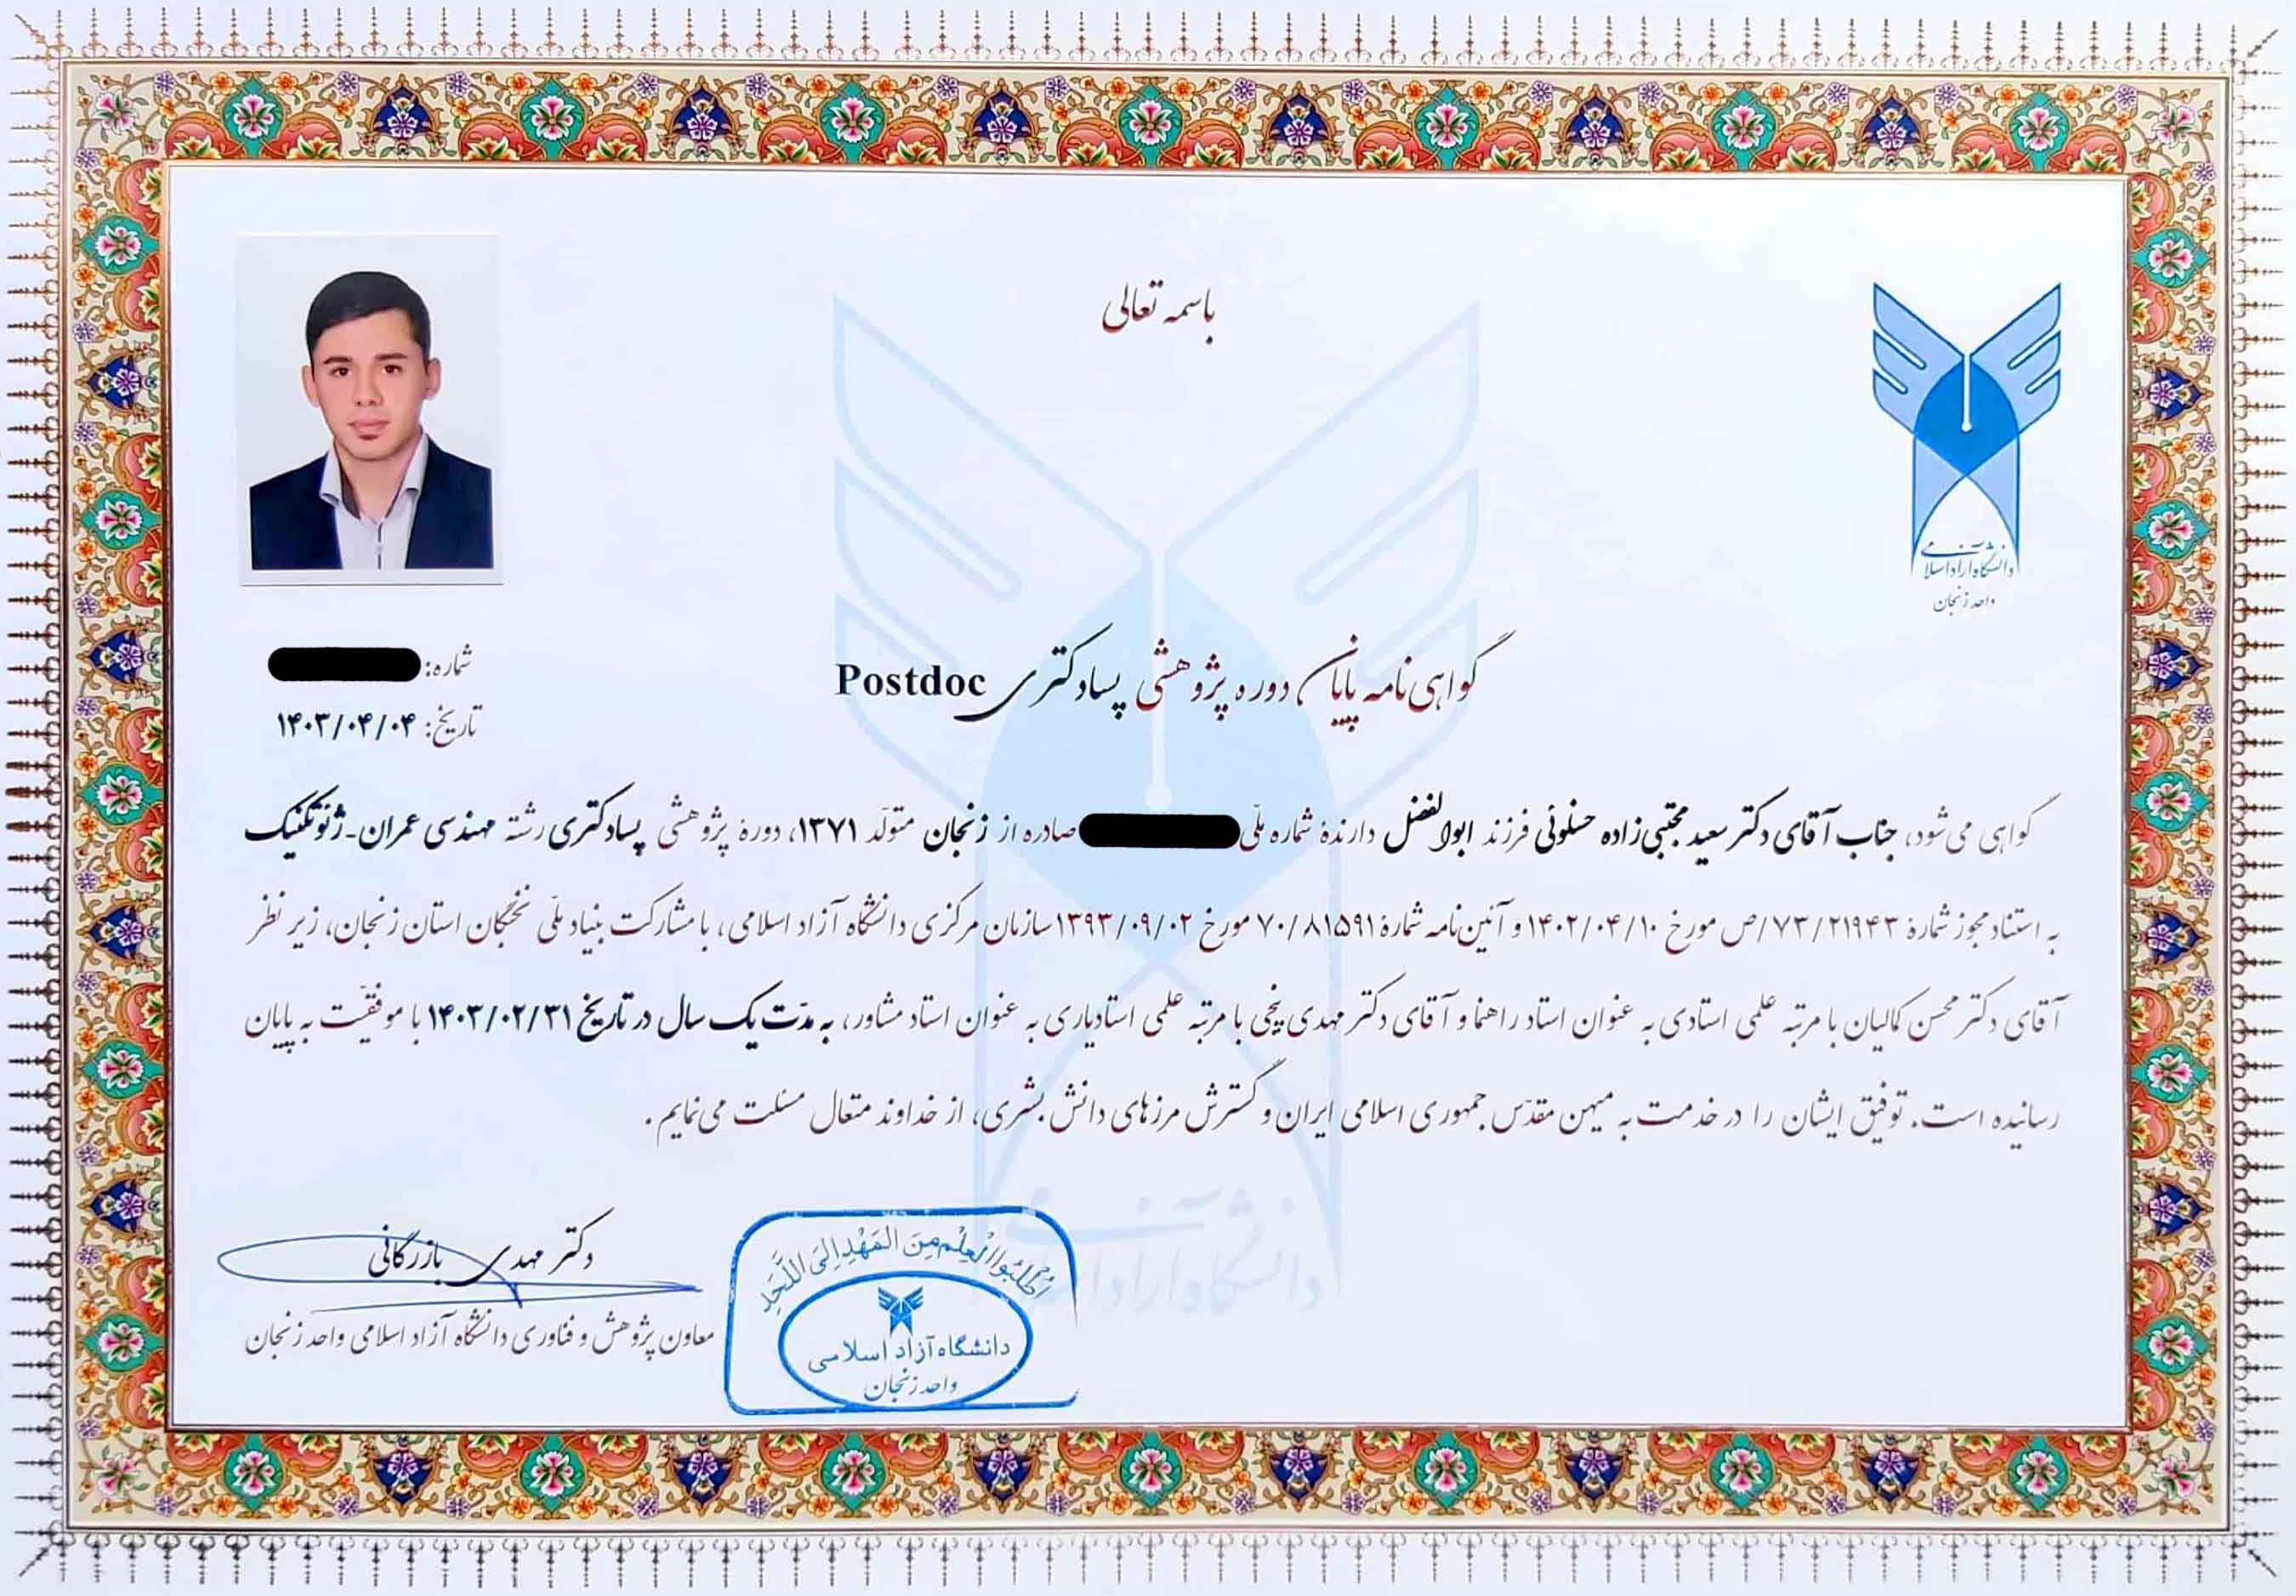 باسمه تعالی
دانشگاه آزاد اسلامی
واحد زنجان
شماره:
تاریخ: ۱۴۰۳/۰۴/۰۴
گواهی‌نامه پایان دوره پژوهشی پسادکتری Postdoc
گواهی می‌شود، جناب آقای دکتر سعید مجتبی‌زاده حسنلوئی فرزند ابوالفضل دارندهٔ شماره ملّی صادره از زنجان متولّد ۱۳۷۱، دورهٔ پژوهشی پسادکتری رشته مهندسی عمران-ژئوتکنیک
به استناد مجوز شمارهٔ ۷۳/۲۱۹۴۳/ص مورخ ۱۴۰۲/۰۴/۱۰ و آئین‌نامه شمارهٔ ۷۰/۸۱۵۹۱ مورخ ۱۳۹۳/۰۹/۰۲ سازمان مرکزی دانشگاه آزاد اسلامی، با مشارکت بنیاد ملّی نخبگان استان زنجان، زیر نظر
آقای دکتر محسن کمالیان با مرتبه علمی استادی به عنوان استاد راهنما و آقای دکتر مهدی پنجی با مرتبه علمی استادیاری به عنوان استاد مشاور، به مدّت یک سال در تاریخ ۱۴۰۳/۰۲/۳۱ با موفقیّت به پایان
رسانیده است. توفیق ایشان را در خدمت به میهن مقدّس جمهوری اسلامی ایران و گسترش مرزهای دانش بشری، از خداوند متعال مسئلت می‌نمایم.
دکتر مهدی بازرگانی
معاون پژوهش و فناوری دانشگاه آزاد اسلامی واحد زنجان
اُطْلُبُوا الْعِلْمَ مِنَ الْمَهْدِ اِلَی اللَّحَدِ
دانشگاه آزاد اسلامی
واحد زنجان
دانشگاه آزاد اسلامی